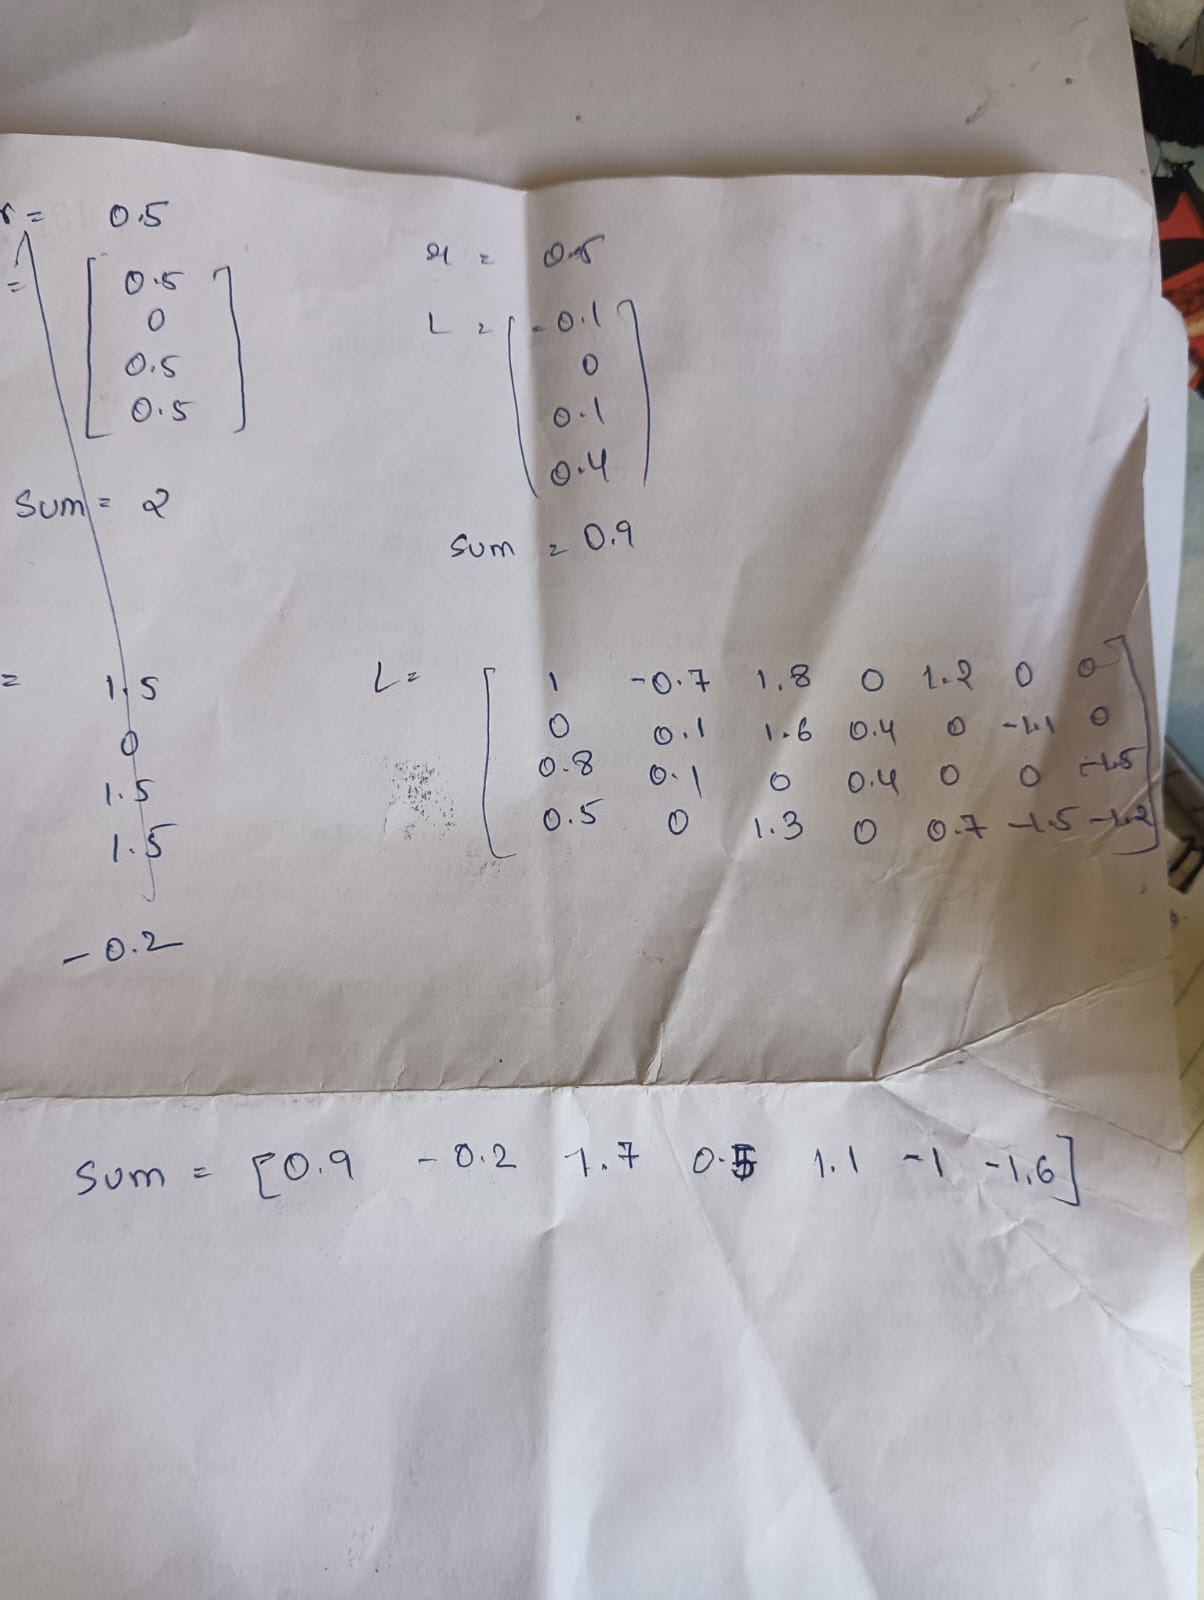 r = 0.5
= 0.5
0
0.5
0.5
Sum = 2
r = 0.5
L = -0.1
0
0.1
0.4
Sum = 0.9
= 1.5
0
1.5
1.5
-0.2
L = 1 -0.7 1.8 0 1.2 0 0
0 0.1 1.6 0.4 0 -1.1 0
0.8 0.1 0 0.4 0 0 -1.5
0.5 0 1.3 0 0.7 -1.5 -1.2
Sum = [0.9 -0.2 1.7 0.5 1.1 -1 -1.6]